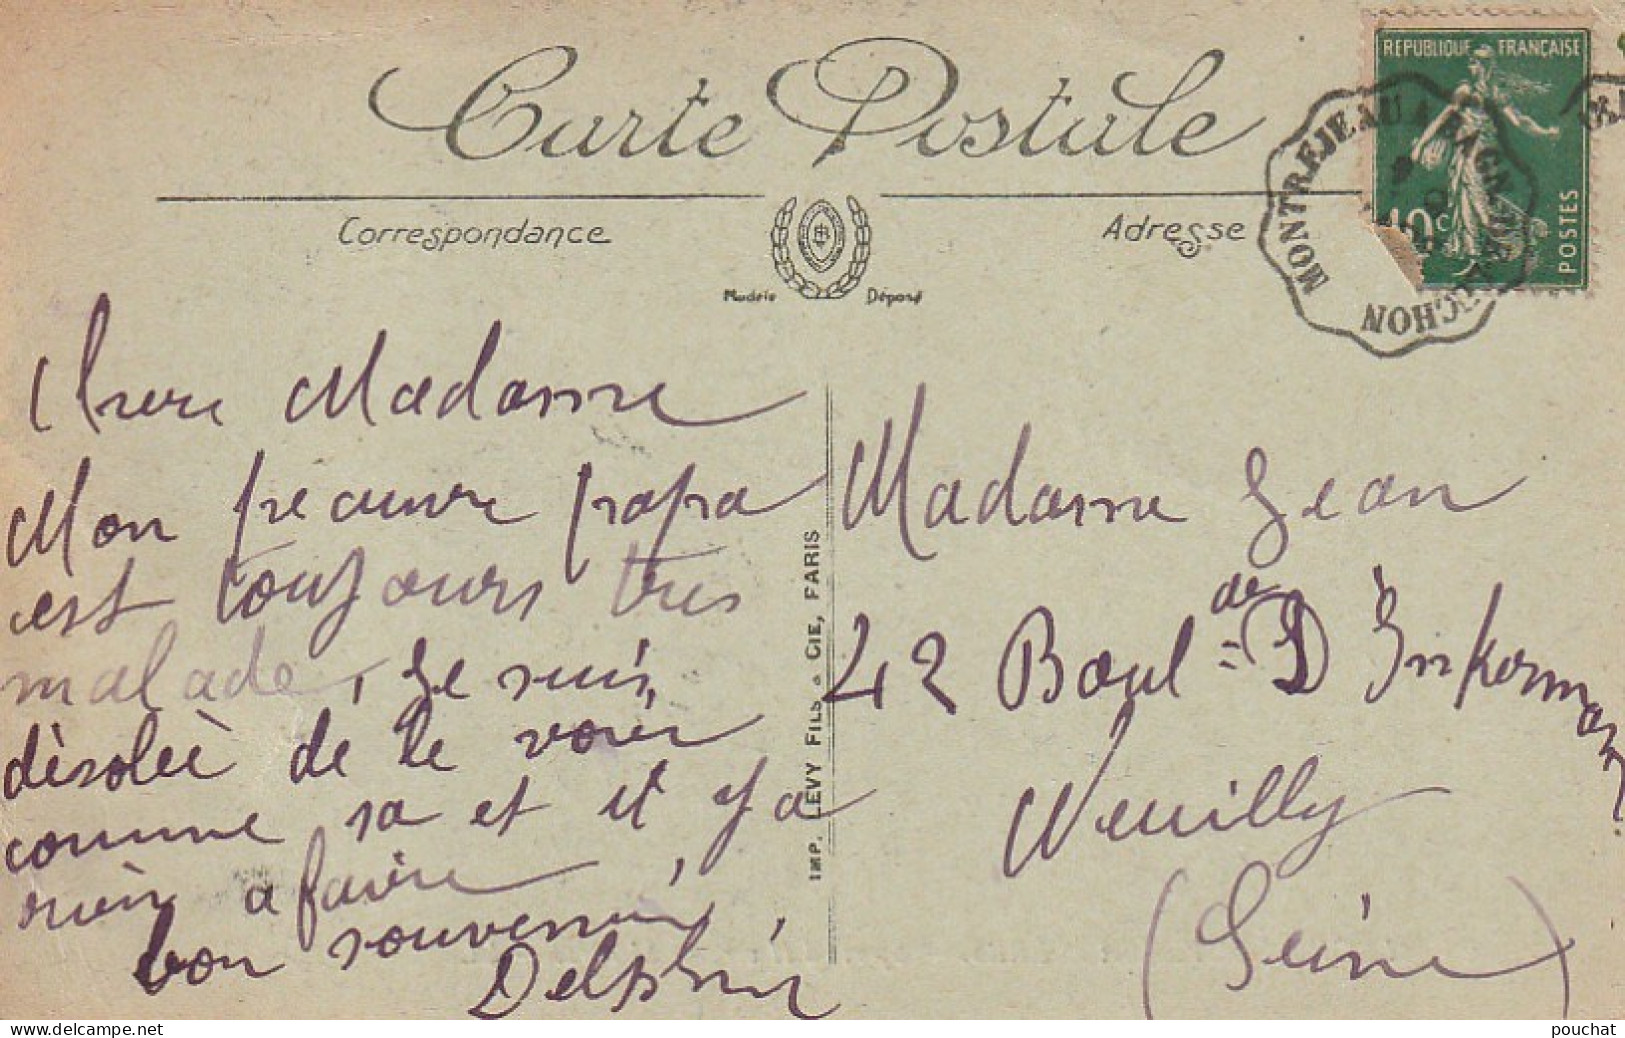 Carte Postale
RÉPUBLIQUE FRANÇAISE
10c
POSTES
MONTRÉJEAU A BAGN
LUCHON
Correspondance
Adresse
Modèle Déposé
Chere Madame
Mon peauvre papa
est toujours tres
malade, je suis
désolée de le voir
comme sa et il y a
rien a faire,
bon souvenir,
Delphin
IMP. LEVY FILS & CIE, PARIS
Madame Jean
42 Boul de D'Inkermann
Neuilly
(Seine)
www.delcampe.net
pouchat